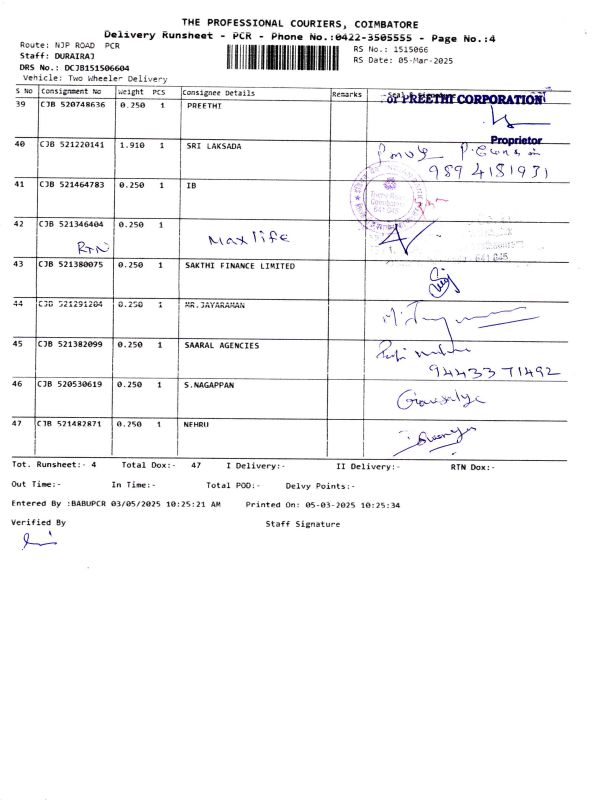 THE PROFESSIONAL COURIERS, COIMBATORE
Delivery Runsheet - PCR - Phone No.:0422-3505555 - Page No.:4
Route: NJP ROAD PCR
RS No.: 1515066
Staff: DURAIRAJ
RS Date: 05-Mar-2025
DRS No.: DCJB151506604
Vehicle: Two Wheeler Delivery
S No Consignment No Weight PCS Consignee Details Remarks Seal & Signature
39 CJB 520748636 0.250 1 PREETHI
For PREETHI CORPORATION
Proprietor
40 CJB 521220141 1.910 1 SRI LAKSADA
989 4181931
41 CJB 521464783 0.250 1 IB
42 CJB 521346404 0.250 1
RTN Max life
43 CJB 521380075 0.250 1 SAKTHI FINANCE LIMITED
44 CJB 521291204 0.250 1 MR.JAYARAMAN
45 CJB 521382099 0.250 1 SAARAL AGENCIES
94433 71492
46 CJB 520530619 0.250 1 S.NAGAPPAN
47 CJB 521482871 0.250 1 NEHRU
Tot. Runsheet:- 4 Total Dox:- 47 I Delivery:- II Delivery:- RTN Dox:-
Out Time:- In Time:- Total POD:- Delvy Points:-
Entered By :BABUPCR 03/05/2025 10:25:21 AM Printed On: 05-03-2025 10:25:34
Verified By Staff Signature